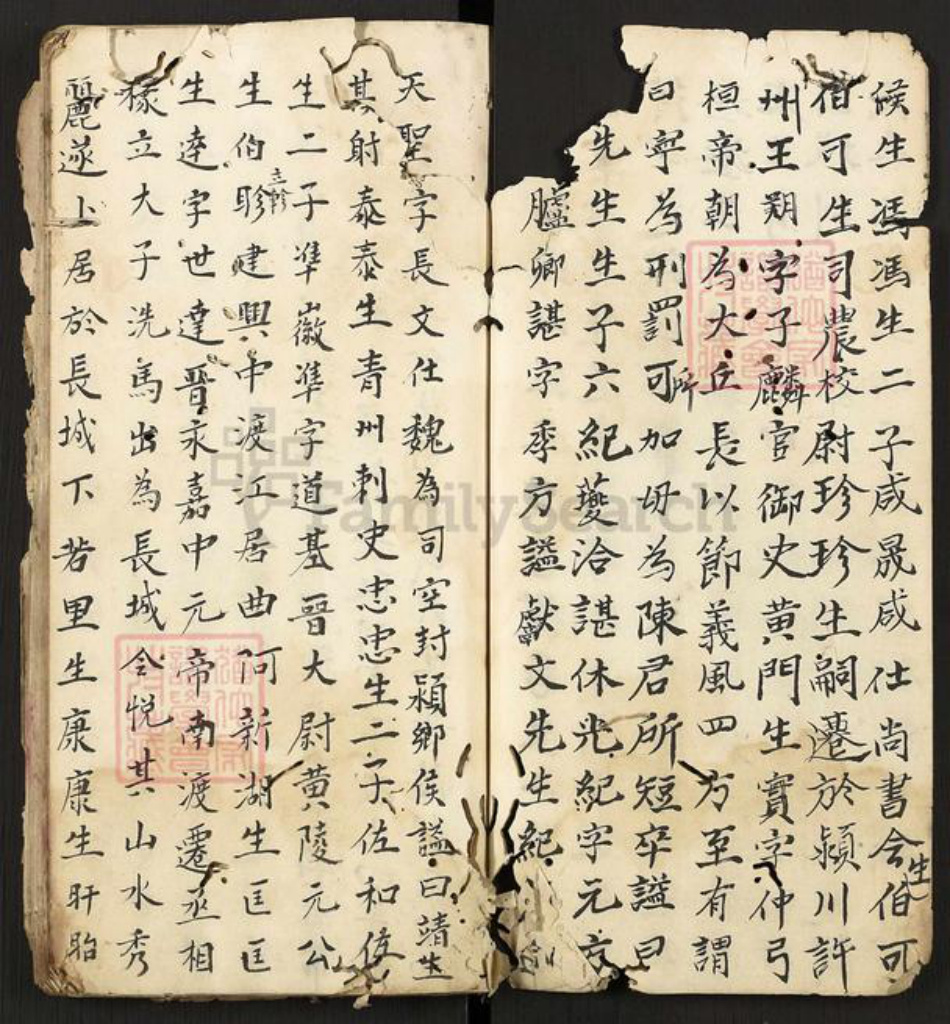 候生馮馮生二子咸晟咸仕尚書令生伯可
伯可生司農校尉珍珍生嗣遷於潁川許
州王朔字子麟官御史黄門生實字仲弓
桓帝朝為大丘長以節義風四方至有謂
曰寧為刑罰所可加毋為陳君所短卒謚曰
先生生子六紀夔洽諶休光紀字元方
臚卿諶字季方謚獻文先生紀
天聖字長文仕魏為司空封潁鄉侯謚曰靖生
其射泰泰生青州刺史忠忠生二子佐和佐
生二子準徽準字道基晋大尉黄陵元公
生伯眕建興中渡江居曲阿新湖生匡匡
生逵字世達晋永嘉中元帝南渡遷丞相
椽立大子洗馬出為長城令悦其山水秀
麗遂卜居於長城下若里生康康生盱眙
FamilySearch